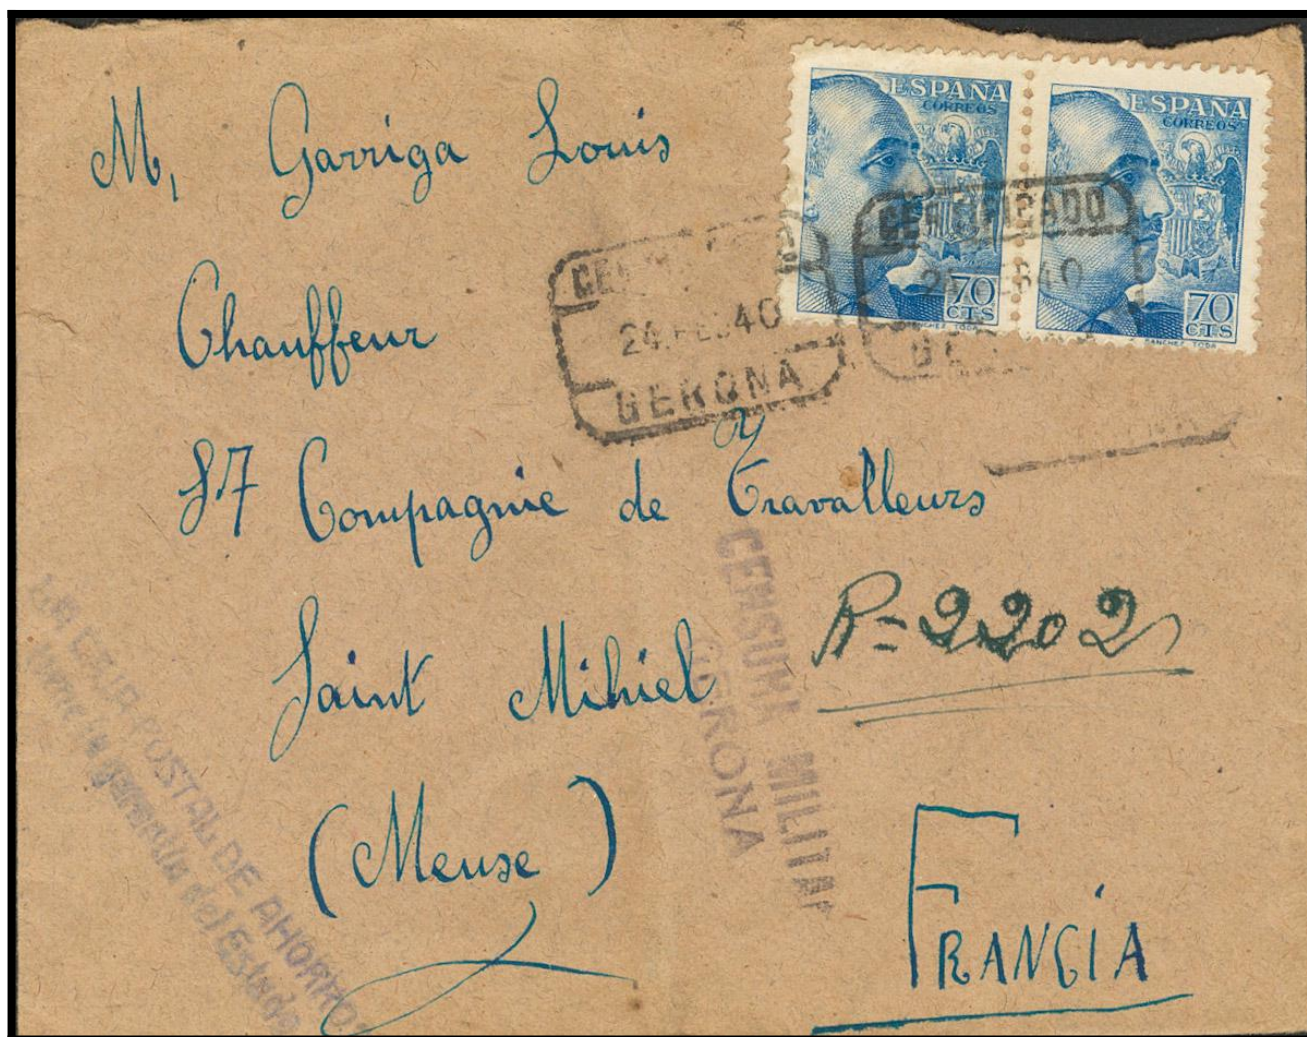 M, Garriga Louis
Chauffeur
87 Compagnie de Travalleurs
Saint Mihiel
(Meuse)
FRANCIA
R=2202
ESPAÑA
CORREOS
70
CTS
SANCHEZ TODA
ESPAÑA
CORREOS
70
CTS
SANCHEZ TODA
24.FEB40
GERONA
CERTIFICADO
CENSURA MILITAR
GERONA
LA CAJA POSTAL DE AHORROS
tiene la garantía del Estado